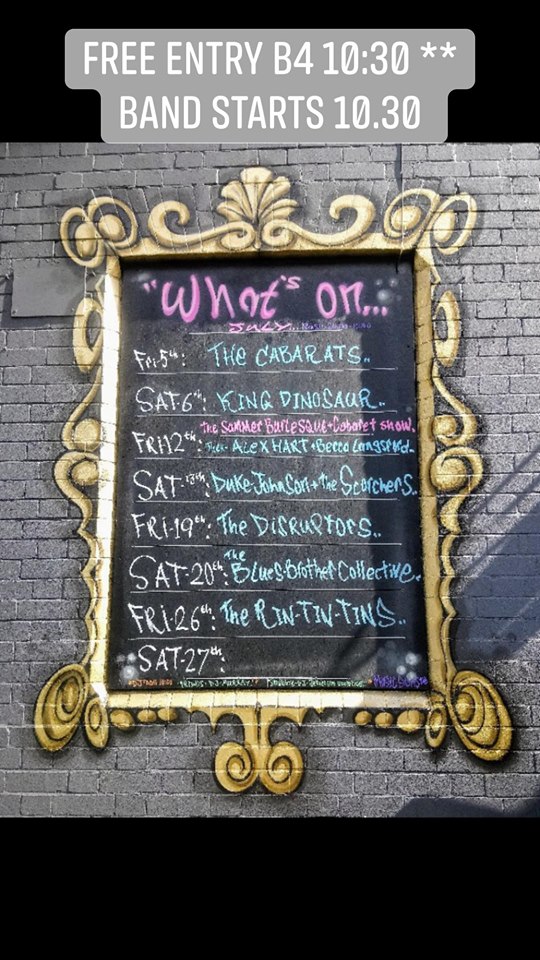 FREE ENTRY B4 10:30 **
BAND STARTS 10.30
"What's on...
JULY...
Fri-5th: THE CABARATS..
SAT-6th: KING DINOSAUR..
The Summer Burlesque + Cabaret show.
FRI12th: ALEX HART + Becca Langsford..
SAT-13th: Duke Johnson + The Scorchers..
FRI-19th: The DISRUPTORS..
SAT-20th: The Blues-Brother Collective..
FRI-26th: The RIN-TIN-TINS..
SAT-27th: